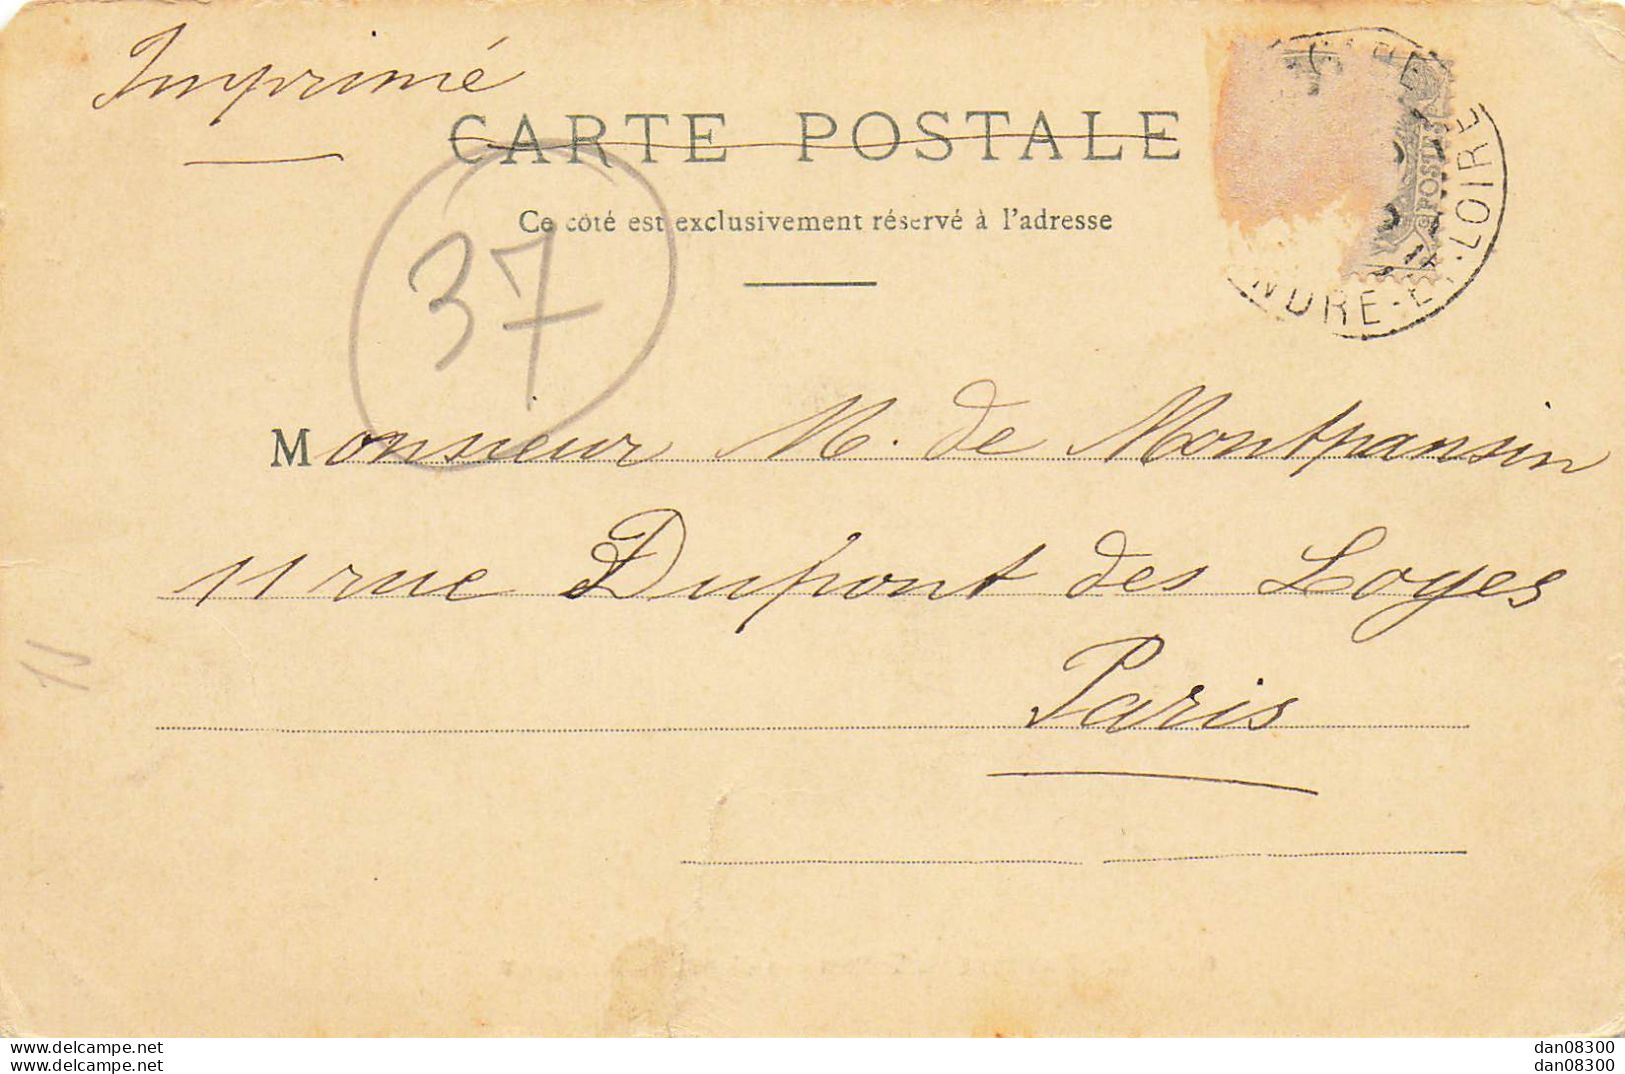 Imprimé
CARTE POSTALE
Ce côté est exclusivement réservé à l'adresse
37
POSTES
INDRE-ET-LOIRE
Monsieur M. de Montpansin
11 rue Dupont des Loges
Paris
www.delcampe.net
www.delcampe.net
dan08300
dan08300